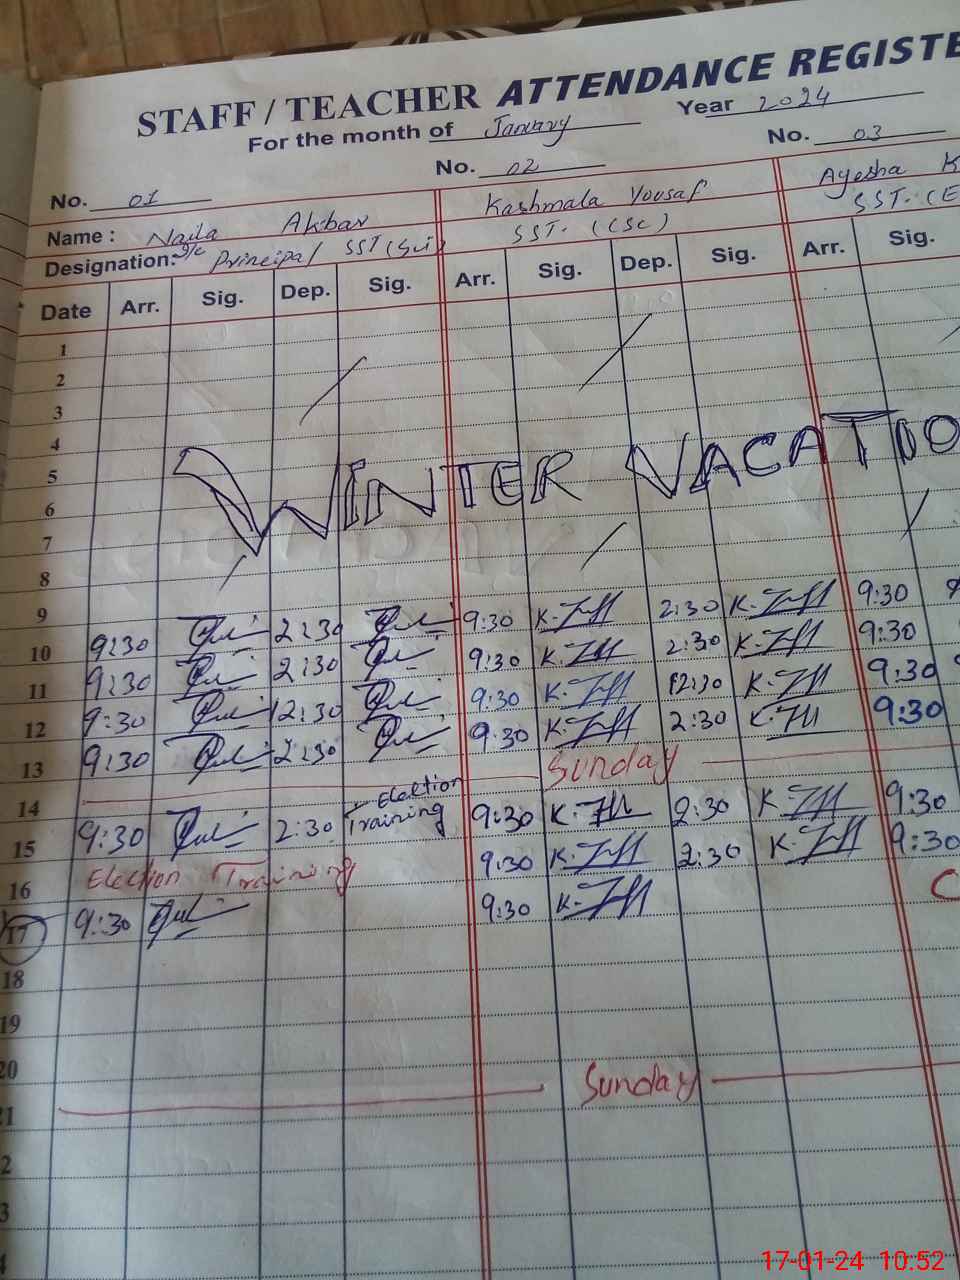 STAFF / TEACHER ATTENDANCE REGISTE
For the month of January Year 2024
No. 01 No. 02 No. 03
Name : Naila Akbar Kashmala Yousaf Ayesha K
Designation: I/c Principal SST (Sci) SST. (CSc) SST. (E
Date Arr. Sig. Dep. Sig. Arr. Sig. Dep. Sig. Arr. Sig.
1
2
3
4
5 WINTER VACATIO
6
7
8
9 9:30 2:30 9:30 K. 2:30 K. 9:30
10 9:30 2:30 9:30 K. 2:30 K. 9:30
11 9:30 12:30 9:30 K. 12:30 K. 9:30
12 9:30 2:30 9:30 K. 2:30 K. 9:30
13 Sunday
14 9:30 2:30 Election Training 9:30 K. 2:30 K. 9:30
15 Election Training 9:30 K. 2:30 K. 9:30
16 9:30 9:30 K. C
17
18
19
20 Sunday
21
2
3
4
17-01-24 10:52